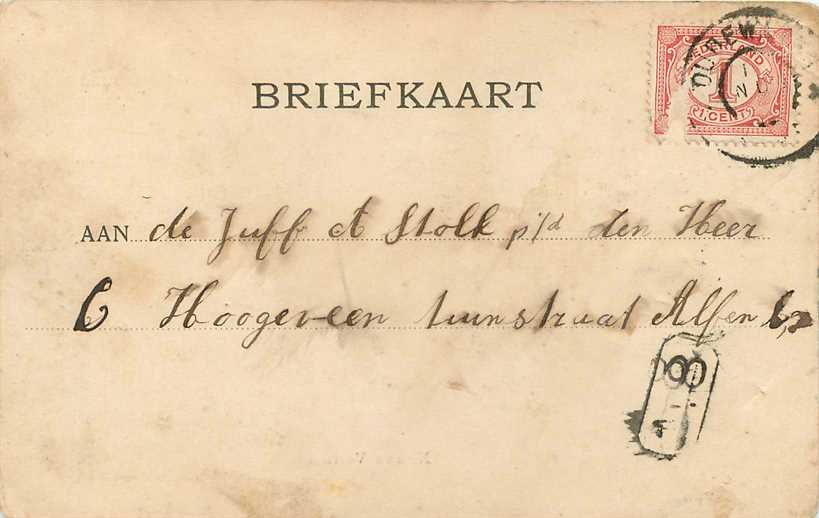 BRIEFKAART
NEDERLAND
1
1 CENT
OUDEW
AAN de Juff A Stolk p/d den Heer
C Hoogeveen tuinstraat Alfen
8